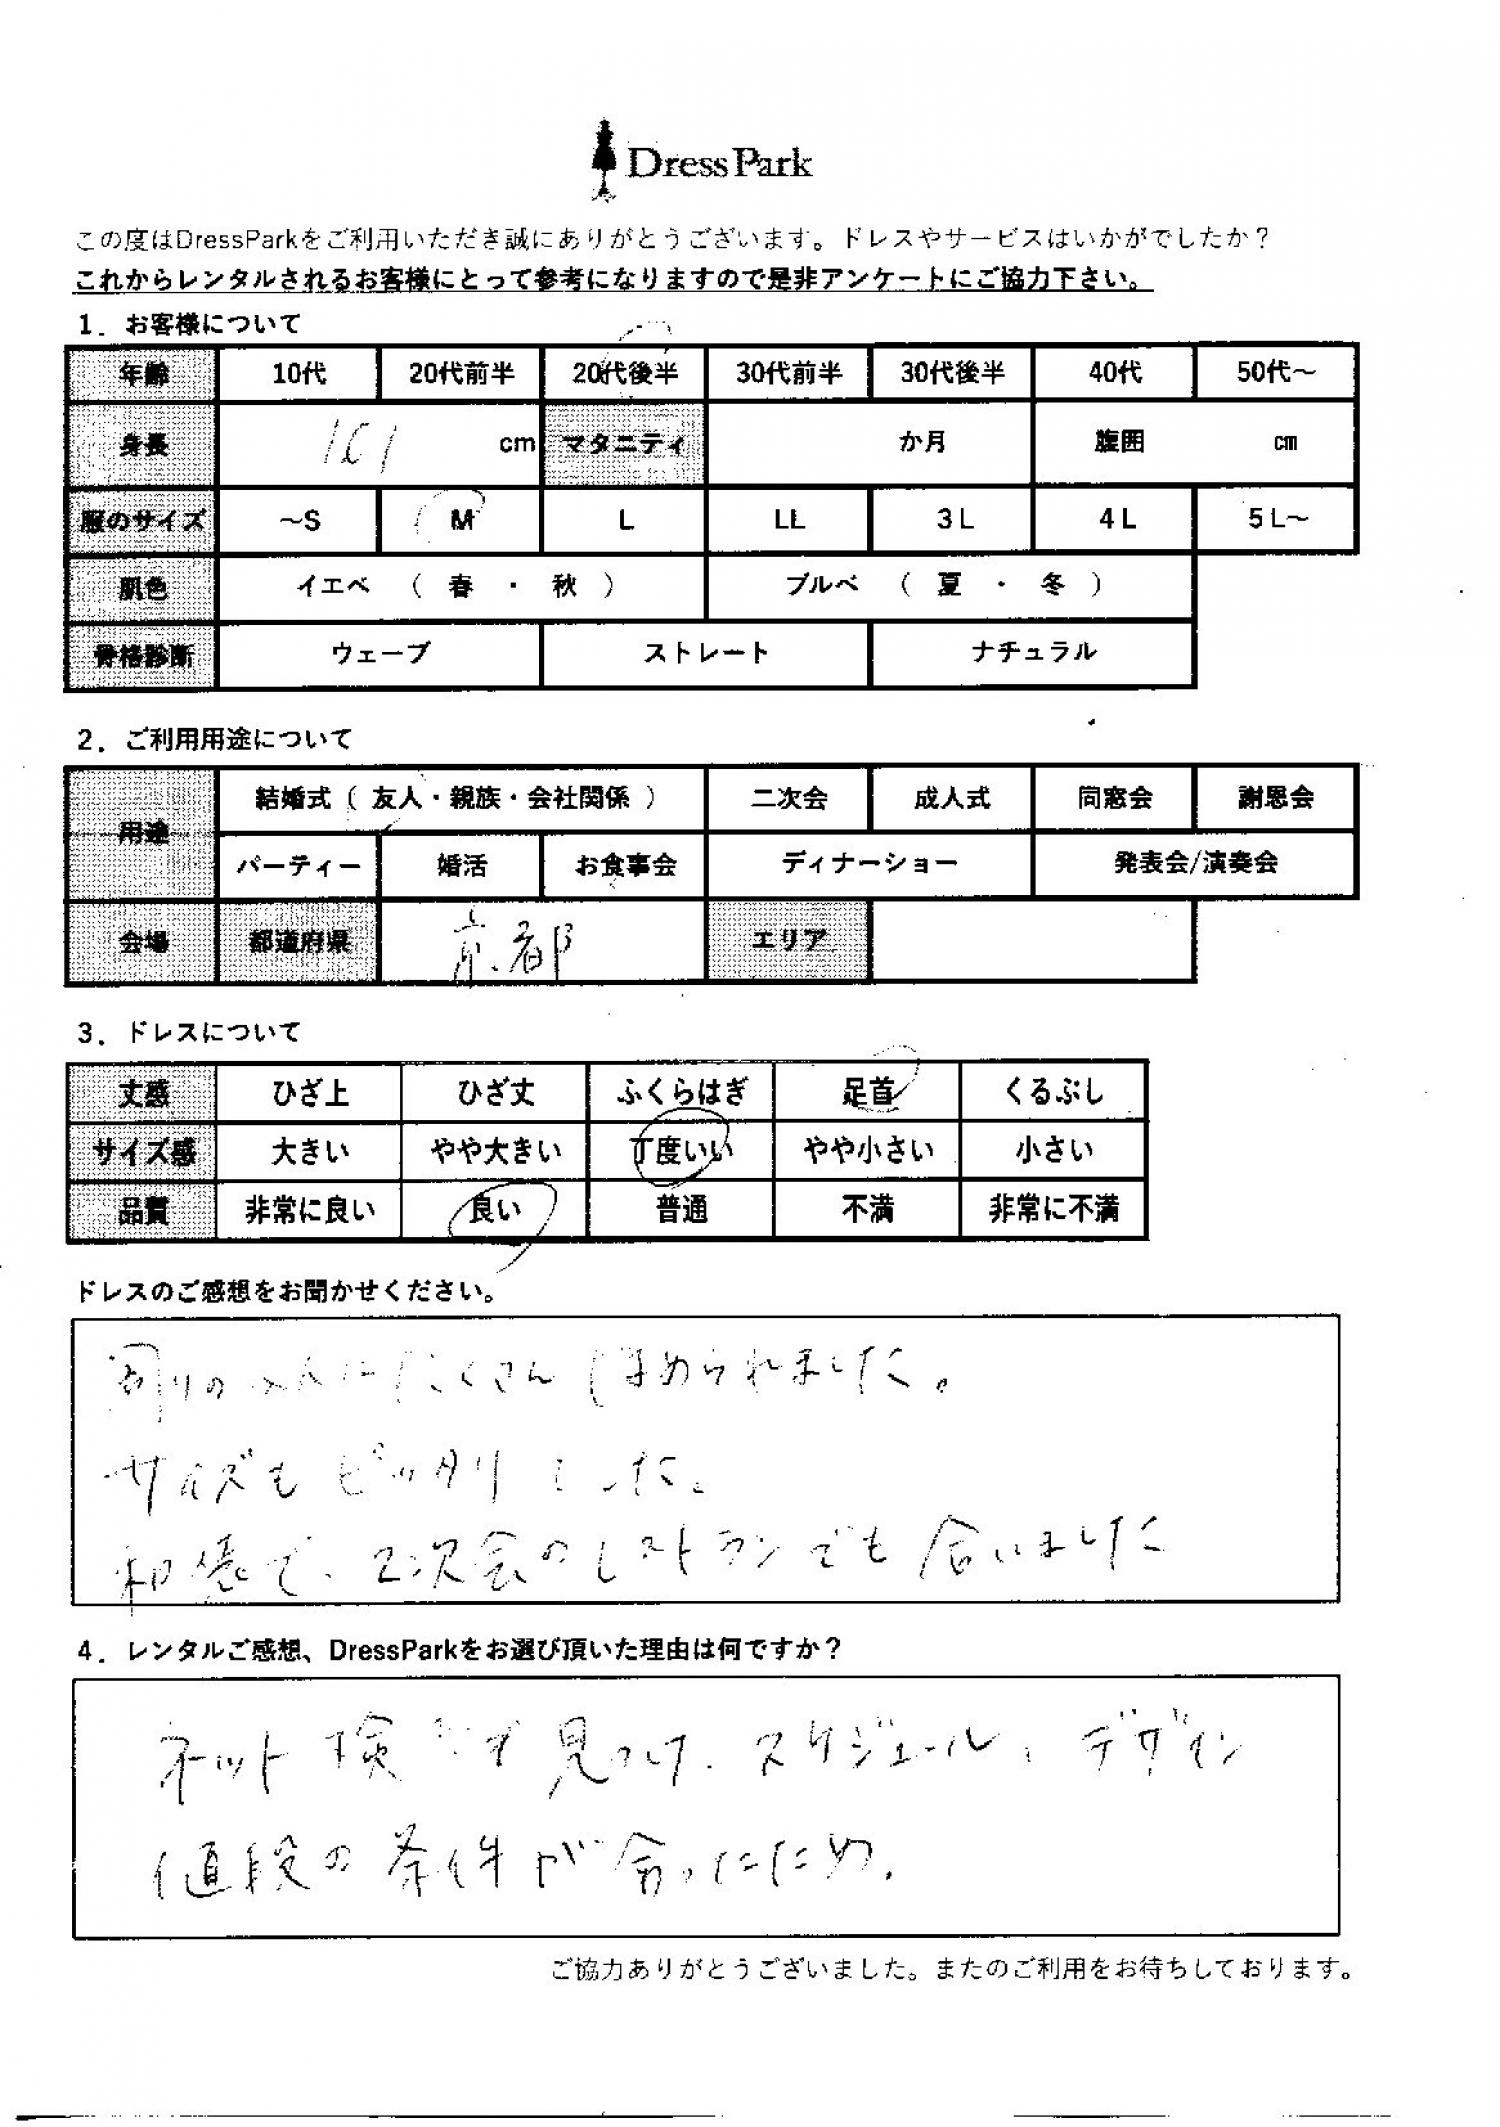 DressPark
この度はDressParkをご利用いただき誠にありがとうございます。ドレスやサービスはいかがでしたか？
これからレンタルされるお客様にとって参考になりますので是非アンケートにご協力下さい。
1．お客様について
年齢 10代 20代前半 20代後半 30代前半 30代後半 40代 50代～
身長 161 cm マタニティ か月 腹囲 cm
服のサイズ ～S M L LL 3L 4L 5L～
肌色 イエベ （ 春 ・ 秋 ） ブルベ （ 夏 ・ 冬 ）
骨格診断 ウェーブ ストレート ナチュラル
2．ご利用用途について
用途 結婚式（ 友人・親族・会社関係 ） 二次会 成人式 同窓会 謝恩会
パーティー 婚活 お食事会 ディナーショー 発表会/演奏会
会場 都道府県 京都 エリア
3．ドレスについて
丈感 ひざ上 ひざ丈 ふくらはぎ 足首 くるぶし
サイズ感 大きい やや大きい 丁度いい やや小さい 小さい
品質 非常に良い 良い 普通 不満 非常に不満
ドレスのご感想をお聞かせください。
周りの人にたくさんほめられました。
サイズもピッタリでした。
和感で、2次会のレストランでも合いました
4．レンタルご感想、DressParkをお選び頂いた理由は何ですか？
ネット検索で見つけ、スケジュール、デザイン
値段の条件が合ったため。
ご協力ありがとうございました。またのご利用をお待ちしております。